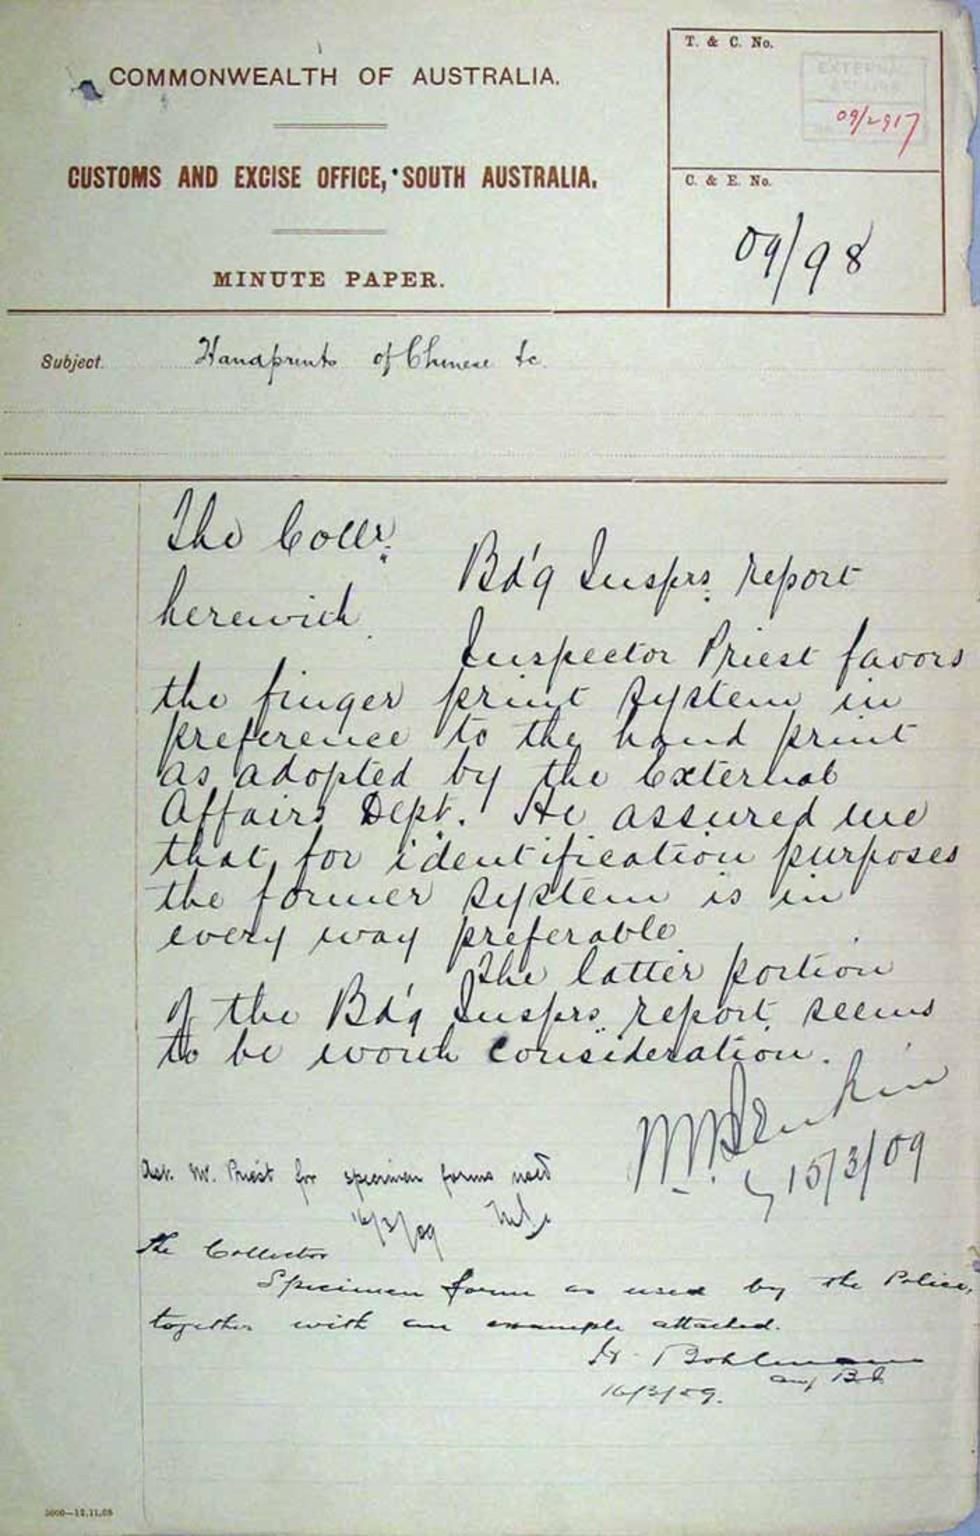 COMMONWEALTH OF AUSTRALIA.
CUSTOMS AND EXCISE OFFICE, SOUTH AUSTRALIA.
MINUTE PAPER.
T. & C. No.
EXTERNAL
AFFAIRS
09/2917
C. & E. No.
09/98
Subject.
Handprints of Chinese &c.
The Collr.
Bd'g Insprs. report
herewith.
Inspector Priest favors
the finger print system in
preference to the hand print
as adopted by the External
Affairs Dept. He assured me
that, for identification purposes
the former system is in
every way preferable.
The latter portion
of the Bd'g Insprs. report, seems
to be worth consideration.
15/3/09
Ask Mr. Priest for specimen forms used
16/3/09
The Collector
Specimen form as used by the Police,
together with an example attached.
Bohlmann
16/3/09.
5000—12.11.08